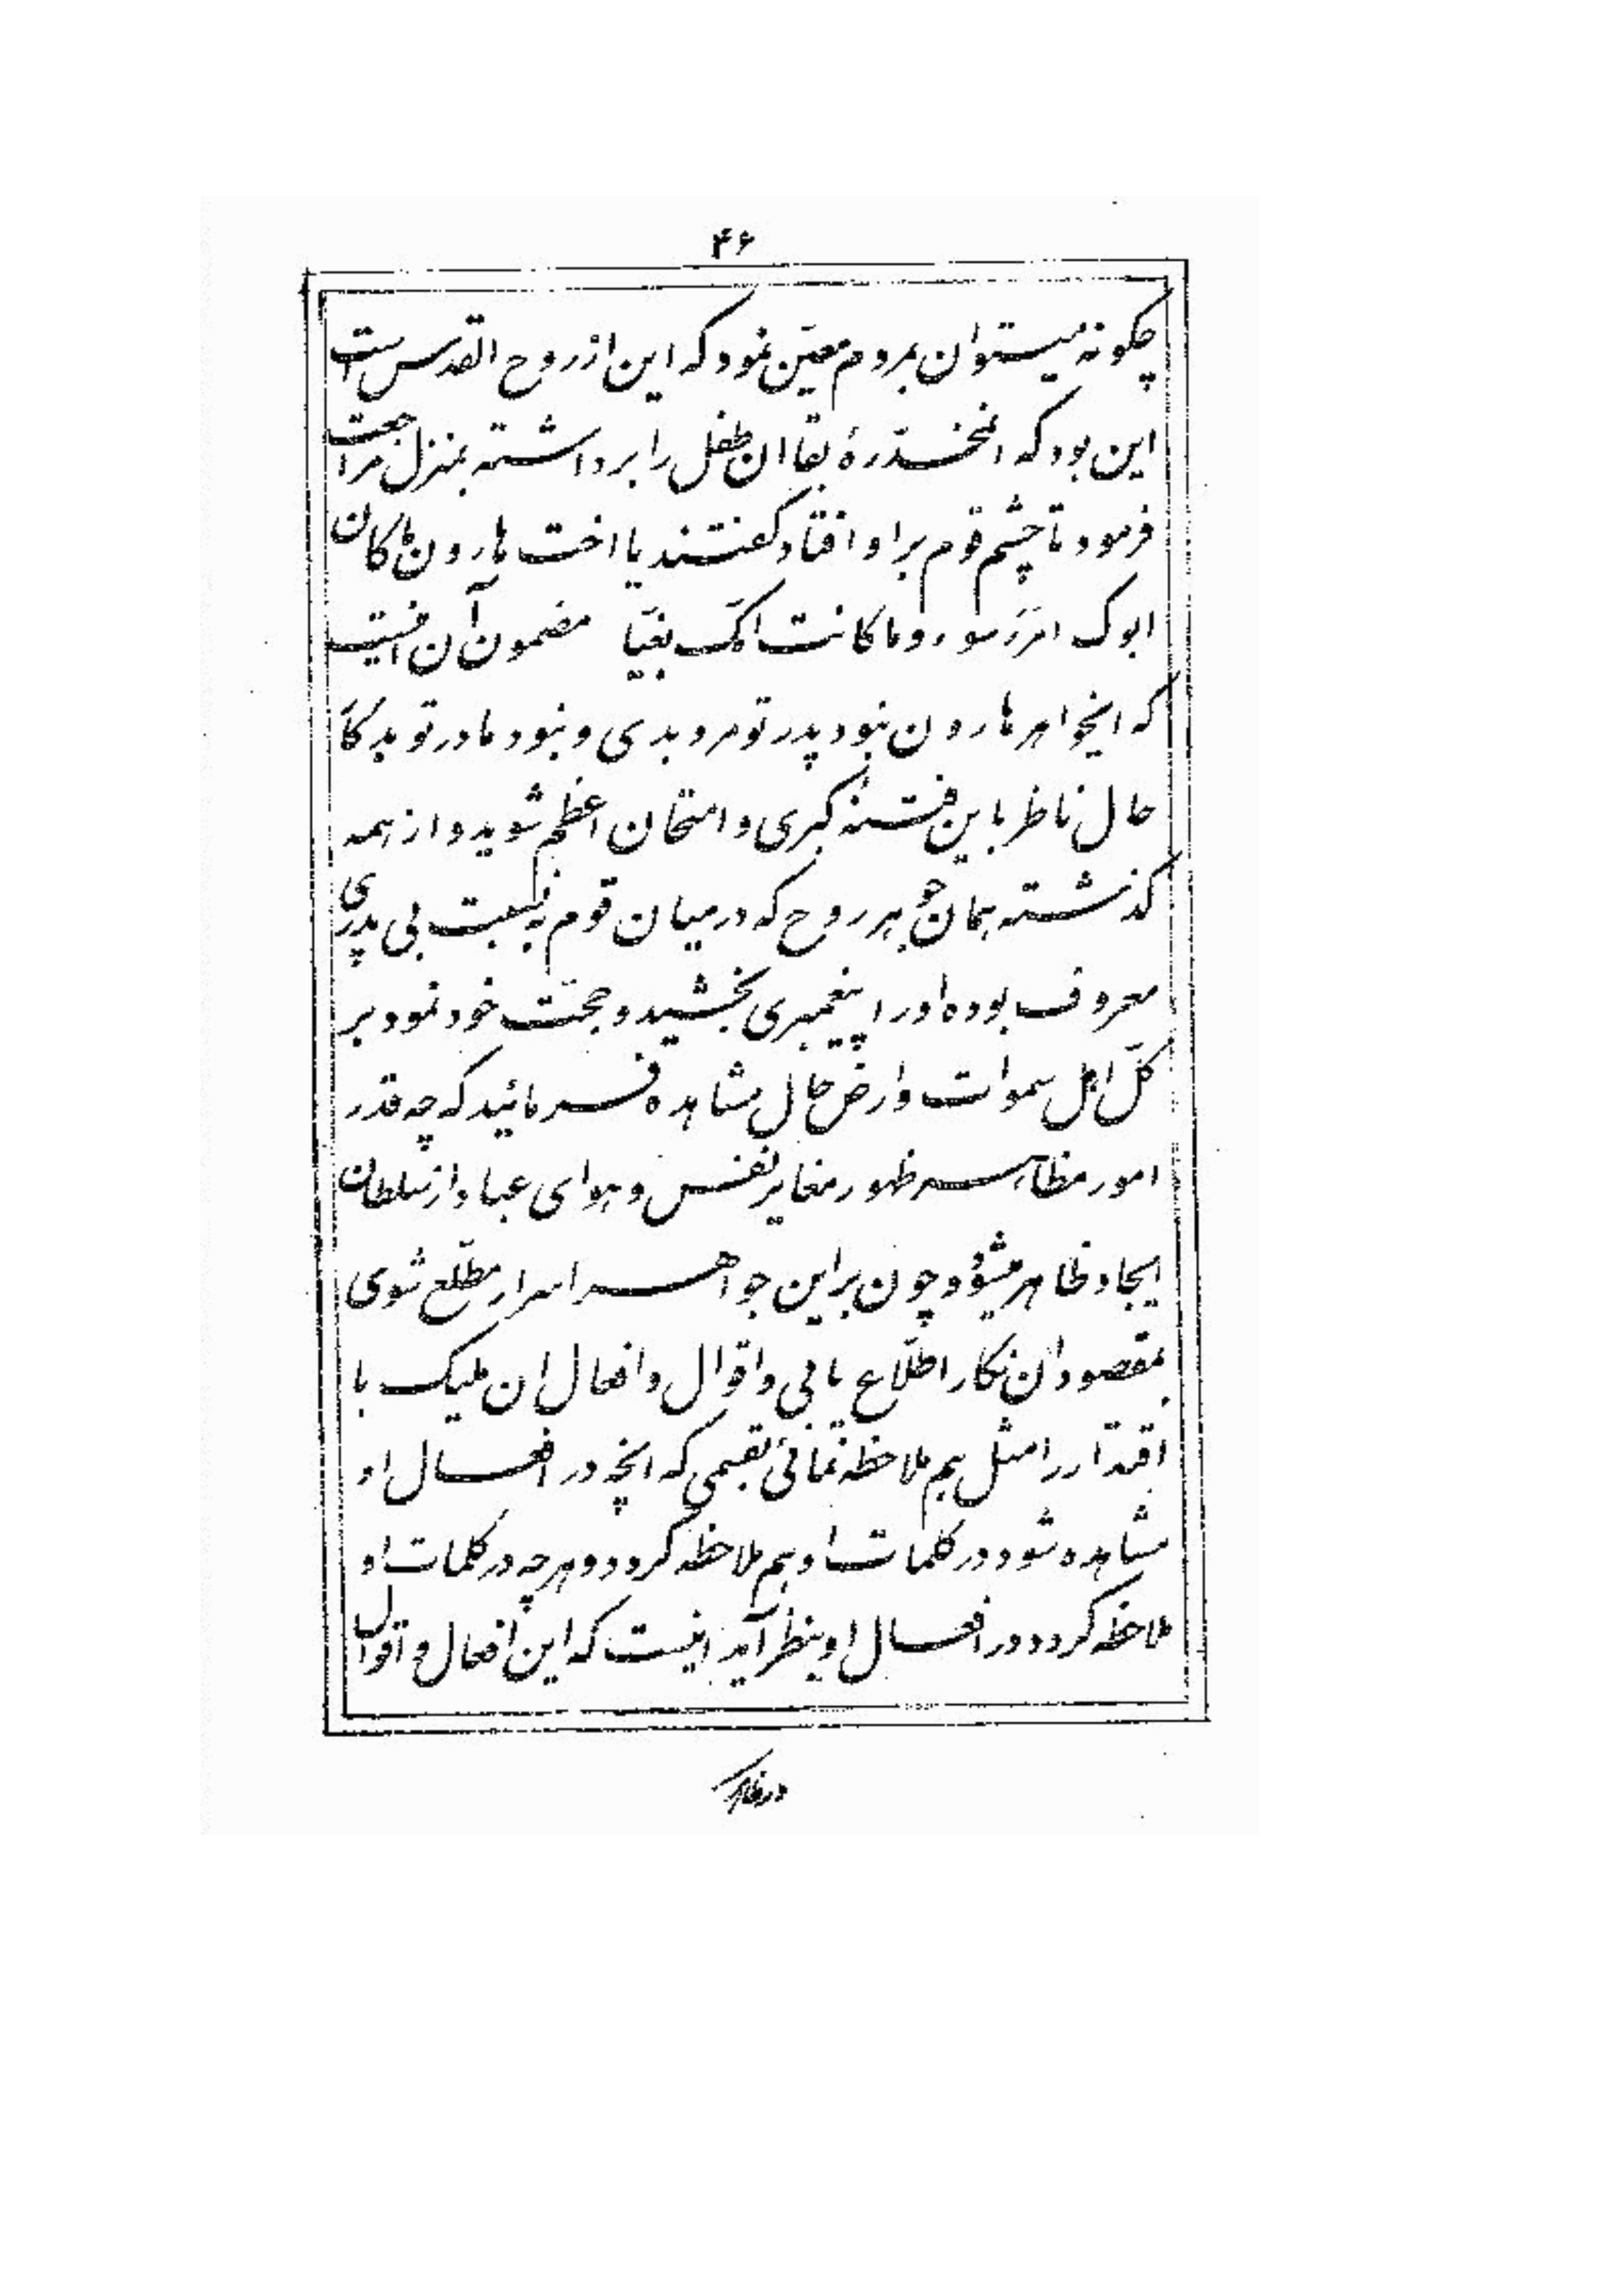 ۴۶
چکونه میتوان بمردم معیّن نمود که این از روح القدس است
این بود که انمخدّرهٔ بقا ان طفل را برداشته بمنزل مراجعت
فرمود تا چشم قوم بر او افتاد کفتند یا اخت هارون ما کان
ابوک امرَءَ سوء و ما کانت امّک بغیّا مضمون آن اینست
که ایخواهر هارون نبود پدر تو مرد بدی و نبود مادر تو بدکار
حال ناظر باین فتنهٔ کبری و امتحان اعظم شوید و از همه
کذشته همان جوهر روح که در میان قوم به نسبت بی پدری
معروف بوده او را پیغمبری بخشید و حجّت خود نمود بر
کلّ اهل سموات و ارض حال مشاهده فرمائید که چه قدر
امور مظاهر ظهور مغایر نفس و هوای عباد از سلطان
ایجاد ظاهر میشود و چون بر این جواهر اسرار مطّلع شوی
بمقصود ان نکار اطّلاع یابی و اقوال و افعال ان ملیک با
اقتدار را مثل هم ملاحظه نمائی بقسمی که انچه در افعال او
مشاهده شود در کلمات او هم ملاحظه کردد و هرچه در کلمات او
ملاحظه کردد در افعال او بنظر آید اینست که این افعال و اقوال
در ظاهر